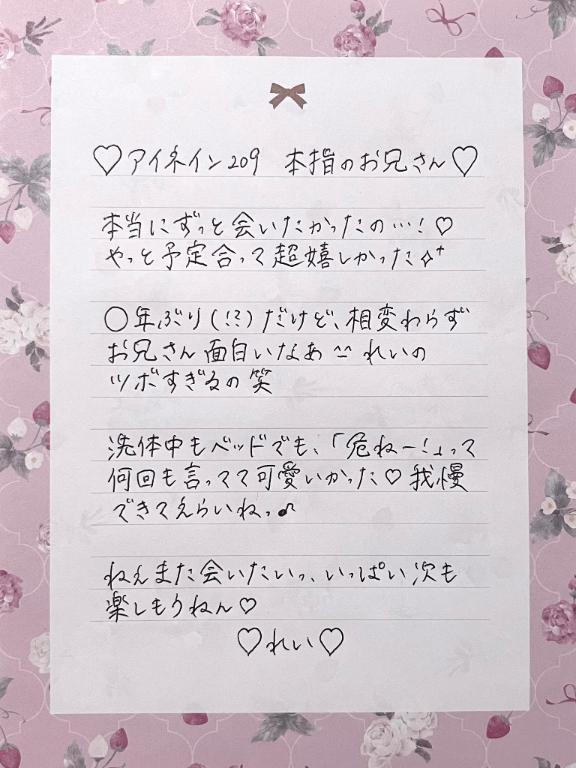 ♡アイネイン209 本指のお兄さん♡
本当にずっと会いたかったの…!♡
やっと予定合って超嬉しかった✧⁺
〇年ぶり(!?)だけど、相変わらず
お兄さん面白いなあ^^ れいの
ツボすぎるの笑
洗体中もベッドでも、「危ねー!」って
何回も言ってて可愛いかった♡我慢
できてえらいねっ♪
ねえまた会いたいっ、いっぱい次も
楽しもうねん♡
♡れい♡